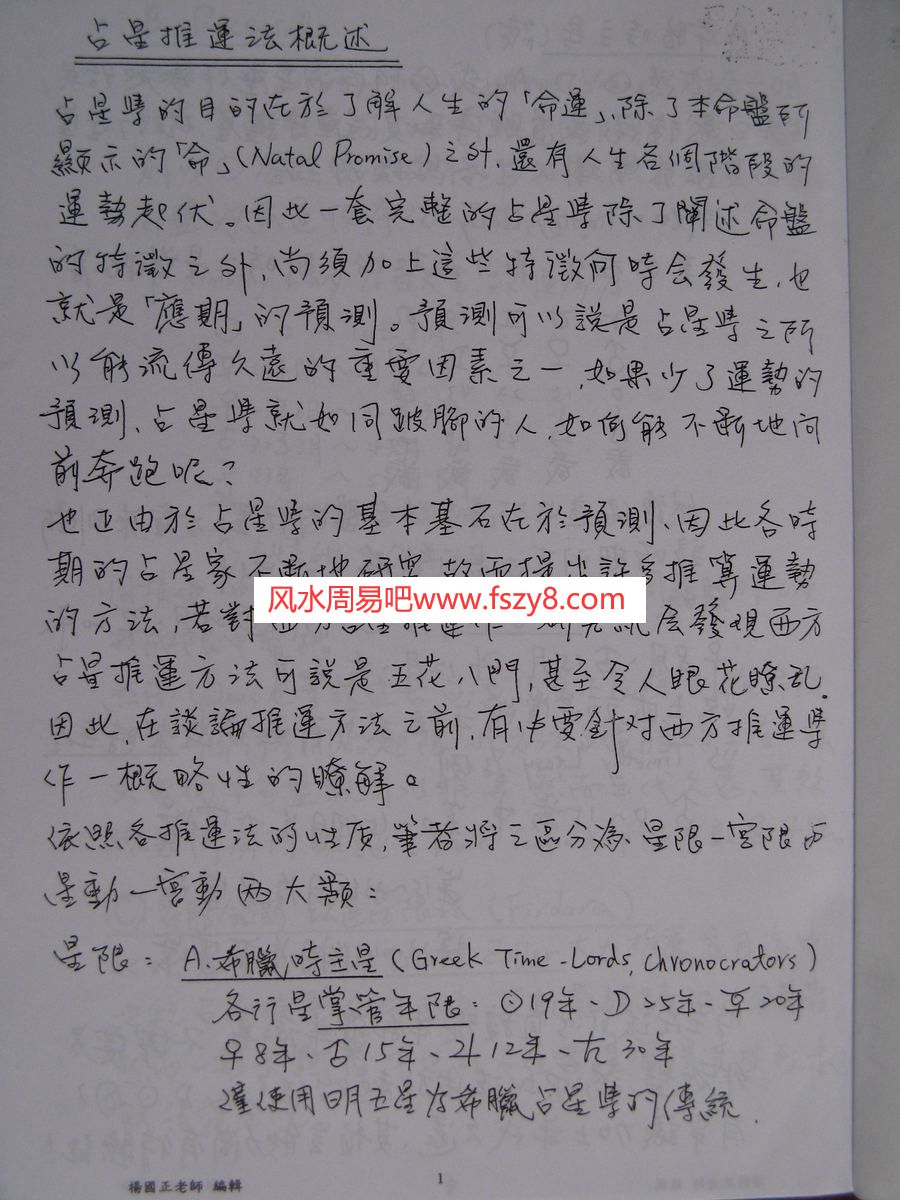 占星推運法概述
占星學的目的在於了解人生的「命運」,除了本命盤所
顯示的「命」(Natal Promise)之外,還有人生各個階段的
運勢起伏。因此一套完整的占星學除了闡述命盤
的特徵之外,尚須加上這些特徵何時会發生,也
就是「應期」的預測。預測可以說是占星學之所
以能流傳久遠的重要因素之一,如果少了運勢的
預測、占星學就如同跛腳的人,如何能不断地向
前奔跑呢?
也正由於占星學的基本基石在於預測、因此各時
期的占星家不断地研究,故而提出許多推算運勢
的方法,若對西方占星推運作一研究就会發現西方
占星推運方法可說是五花八門,甚至令人眼花瞭乱.
風水周易吧www.fszy8.com
因此,在談論推運方法之前,有必要針对西方推運學
作一概略性的瞭解。
依照各推運法的性质,筆者將之區分為星限—宮限两
星動—宮動两大類:
星限: A.希臘時主星(Greek Time-Lords, chronocrators)
各行星掌管年限:☉19年、☽25年、☿20年
♀8年、♂15年、♃12年、♄30年
僅使用日月五星为希臘占星學的傳統.
1
楊國正老師 編輯